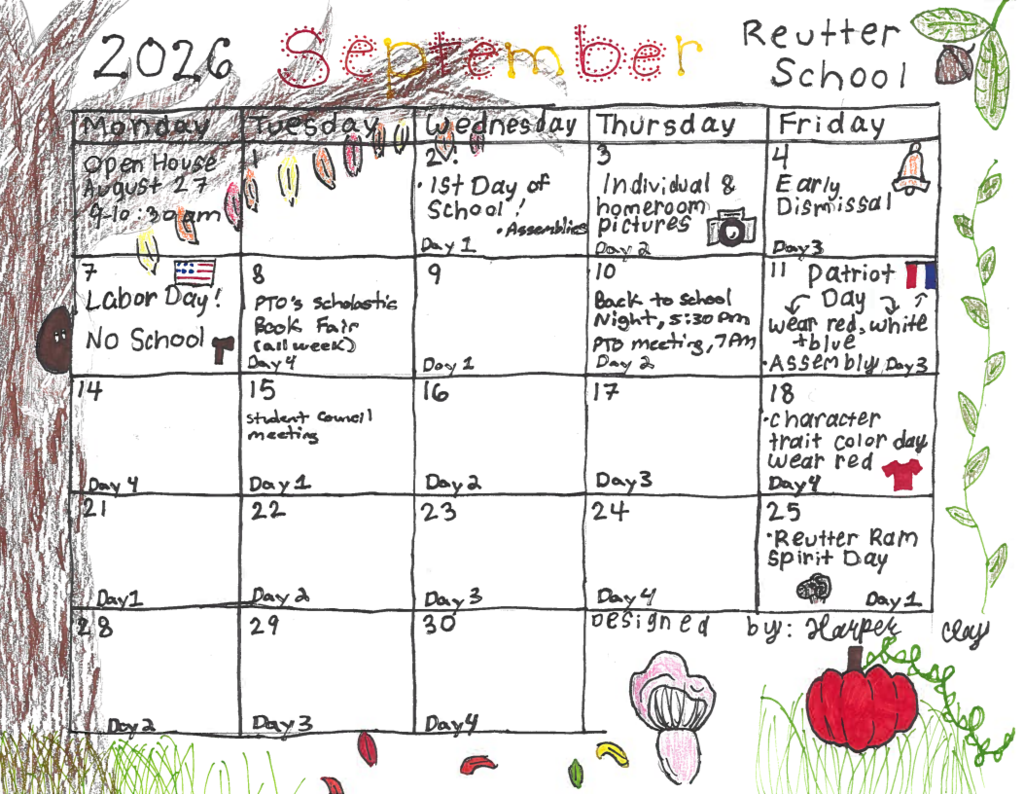 2026 September Reutter
School
Monday Tuesday Wednesday Thursday Friday
Open House
August 27
9-10:30am
1
2
• 1st Day of
School!
• Assemblies
Day 1
3
Individual &
homeroom
pictures
Day 2
4
Early
Dismissal
Day 3
7
Labor Day!
No School
8
PTO's Scholastic
Book Fair
(all week)
Day 4
9
Day 1
10
Back to School
Night, 5:30 pm
PTO meeting, 7PM
Day 2
11 Patriot
Day
wear red, white
+ blue
• Assembly Day 3
14
Day 4
15
Student Council
meeting
Day 1
16
Day 2
17
Day 3
18
• Character
trait color day
wear red
Day 4
21
Day 1
22
Day 2
23
Day 3
24
Day 4
25
• Reutter Ram
Spirit Day
Day 1
28
Day 2
29
Day 3
30
Day 4
Designed by: Harper Clay